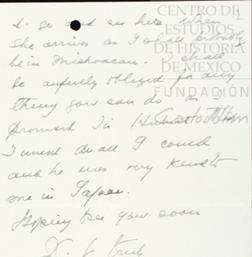 & go and see her when
she arrives as I shall probably
be in Michoacan. I shall
be awfully obliged for any
thing you can do as I
promised
I would do all I could
and he was very kind to
me in Japan.
Hoping see you soon
CENTRO DE
ESTUDIOS
DE HISTORIA
DE MEXICO
FUNDACIÓN